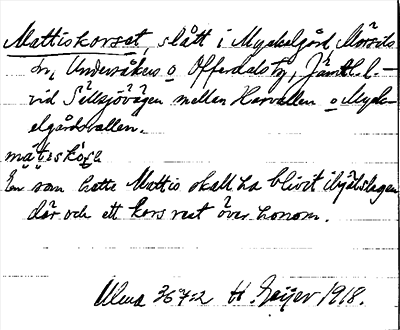 Mattiskorset, slått i Myckelgård, Mörsils
sn, Undersåkers o Offerdals tg, Jämtl. l.
vid Sällsjövägen mellan Harvallen o Myck-
elgårdsvallen.
En som hette Mattis skall ha blivit ihjälslagen
där och ett kors rest över honom.
Ulma 367:2 H. Geijer 1918.